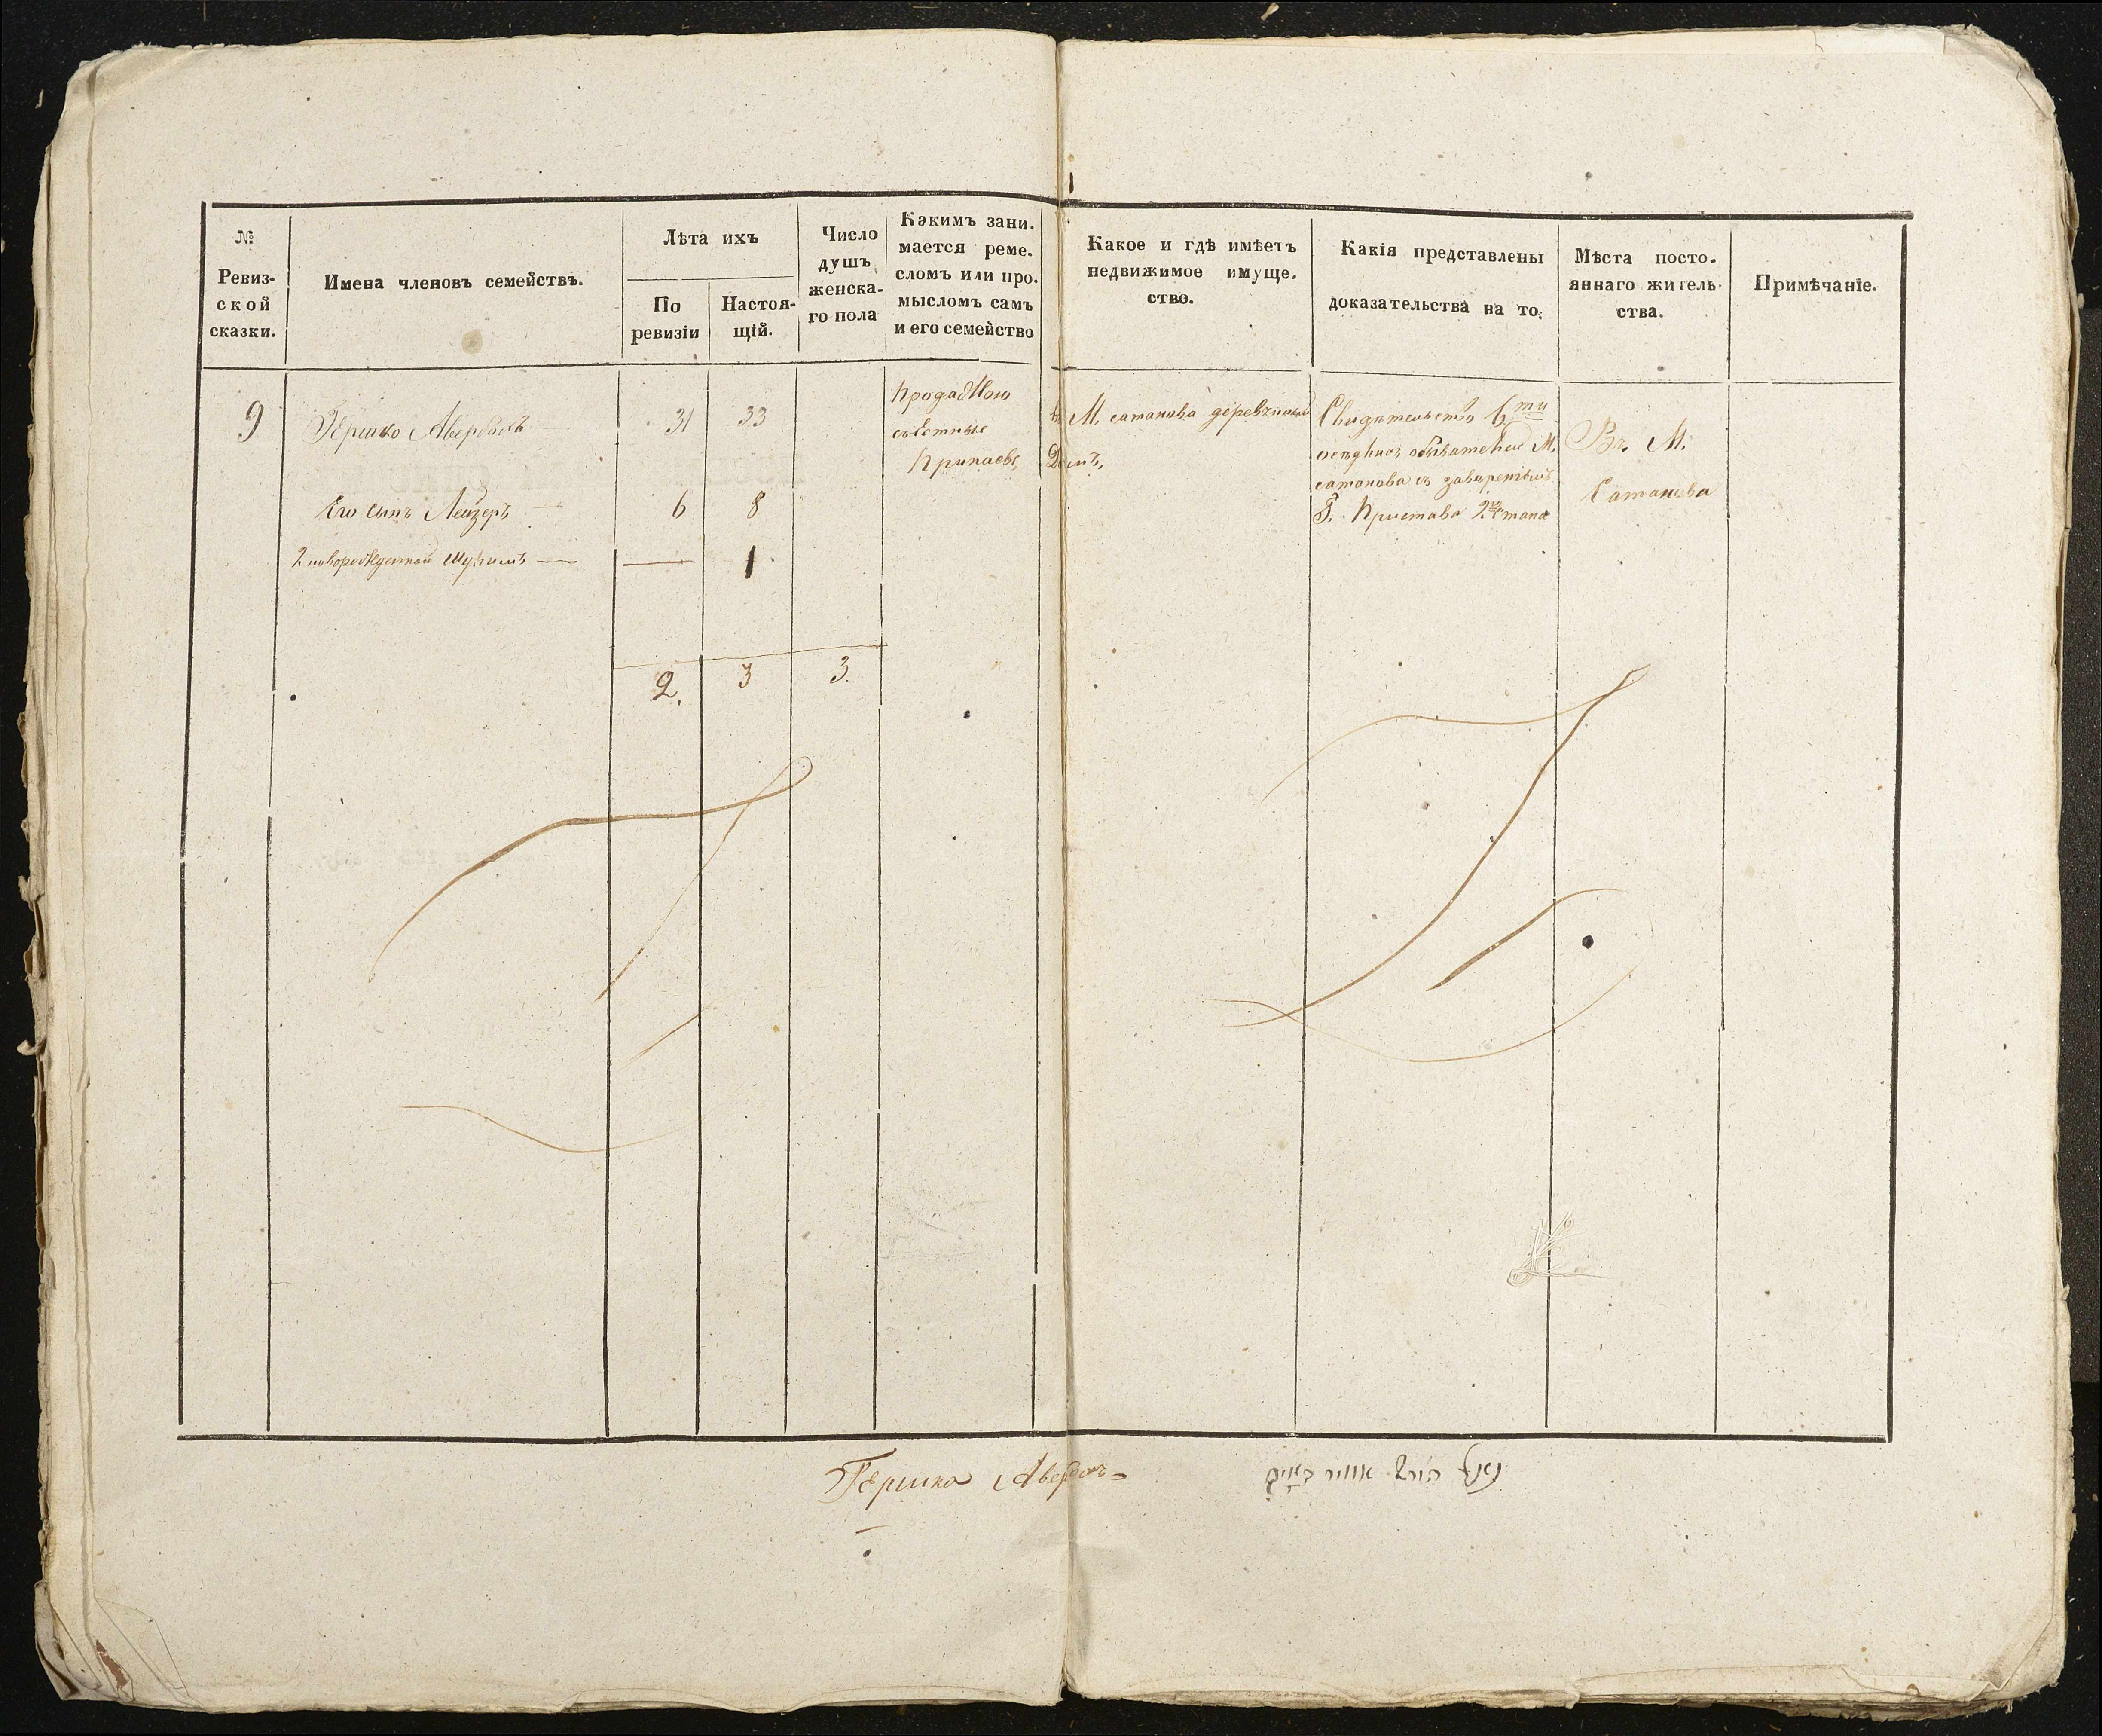 №
Ревиз-
ской
сказки.
Имена членовъ семействъ.
Лѣта ихъ
По
ревизіи
Настоя-
щій.
Число
душъ
женска-
го пола
Какимъ зани.
мается реме.
сломъ или про.
мысломъ самъ
и его семейство
Какое и гдѣ имѣетъ
недвижимое имуще.
ство.
Какія представлены
доказательства на то.
Мѣста посто.
яннаго житель
ства.
Примѣчаніе.
9
Гершко Авербохъ
31
33
Продажою
съѣстные
Припасы
М. сатанова деревянный
Домъ,
Свидѣтельство 6ти
осѣдлых обывателей М.
сатанова съ завѣреніемъ
Г. Пристава 2го стана
Въ М.
Сатанова
Его сынъ Лейзеръ
6
8
2 новорожденный
1
2.
3
3.
Гершко Авербохъ